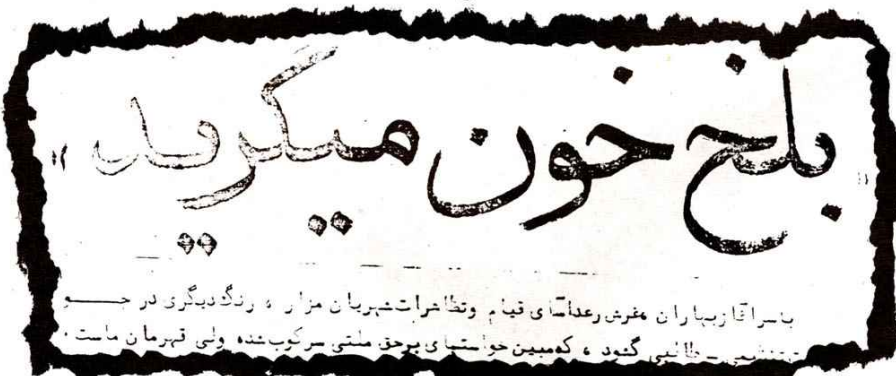 «بلخ خون میگرید»
باسرآغاز بهاران ، غرش رعدآسای قیام وتظاهرات شهریان مزار ، رنگ دیگری در جـــو
طالبی گشود ، که مبین خواستهای برحق ملتی سرکوب شده ولی قهرمان ماست .